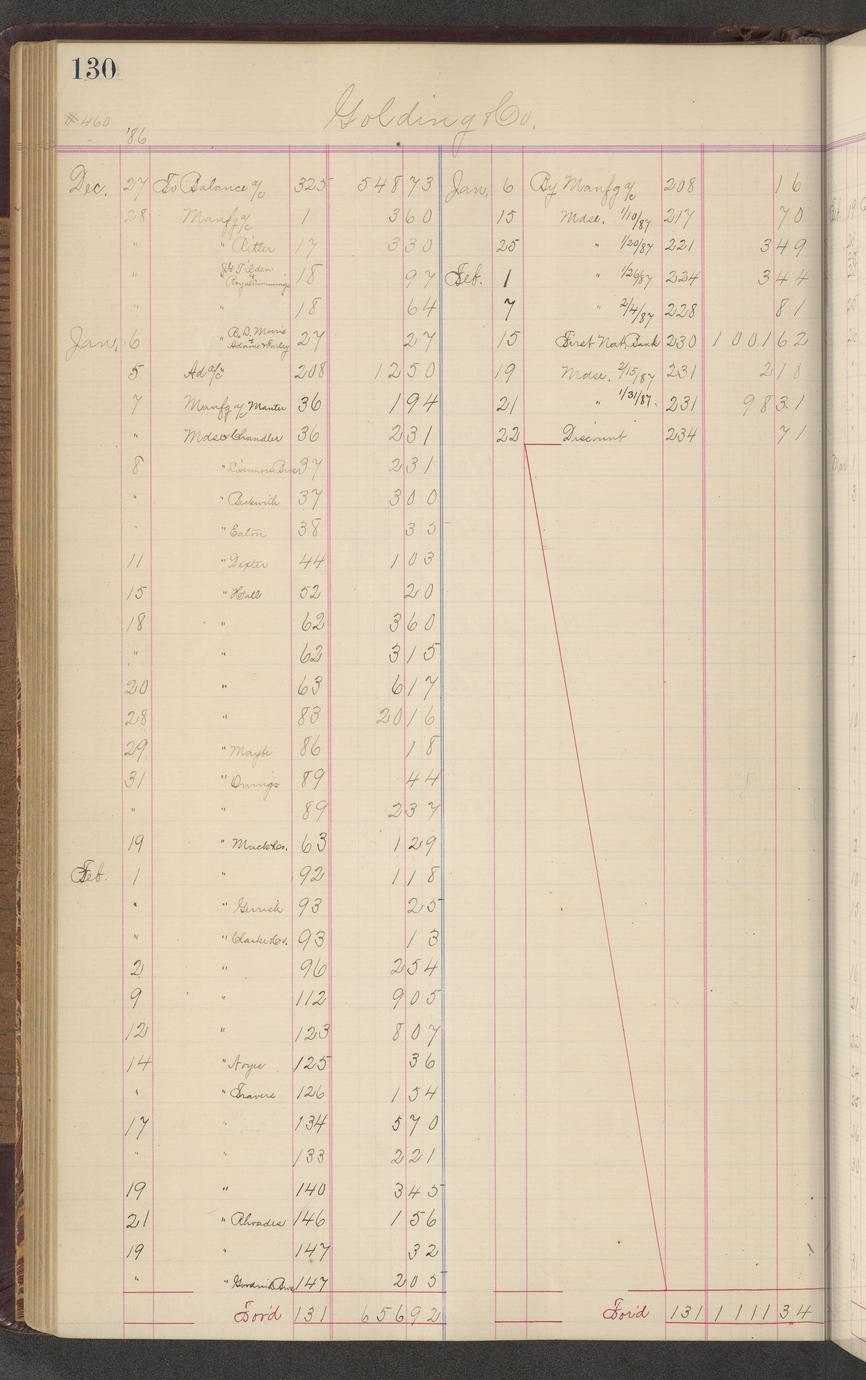 130
Golding & Co.
#460
'86
Dec. 27 To Balance a/c 325 548 73
28 Manfg a/c 1 3 60
" " Ritter 17 3 30
" " Tilden 18 97
" " 18 64
Jan. 6 " R. D. Morris 27 27
5 Ad a/c " 208 12 50
7 Manfg a/c Manter 36 1 94
" Mdse Chandler 36 2 31
8 " Livermore Bros 37 2 31
" " Beckwith 37 3 00
" " Eaton 38 35
11 " Dexter 44 1 03
15 " Hall 52 20
18 " 62 3 60
" " 62 3 15
20 " 63 6 17
28 " 83 20 16
29 " Mayb 86 18
31 " Owings 89 44
" " 89 2 37
19 " Mack & Co. 63 1 29
Feb. 1 " 92 1 18
" " Gerrish 93 25
" " Clarke & Co. 93 13
2 " 96 2 54
9 " 112 9 05
12 " 123 8 07
14 " 125 36
" " Travers 126 1 54
17 " 134 5 70
" " 133 2 21
19 " 140 3 45
21 " Rhoades 146 1 56
19 " 147 32
" " 147 2 05
For'd 131 656 92
Jan. 6 By Manfg a/c 208 16
15 Mdse. 1/10/87 217 70
25 " 1/20/87 221 3 49
Feb. 1 " 1/26/87 224 3 44
7 " 2/4/87 228 81
15 First Nat. Bank 230 1001 62
19 Mdse. 2/15/87 231 2 18
21 " 1/31/87. 231 98 31
22 Discount 234 71
For'd 131 1111 34